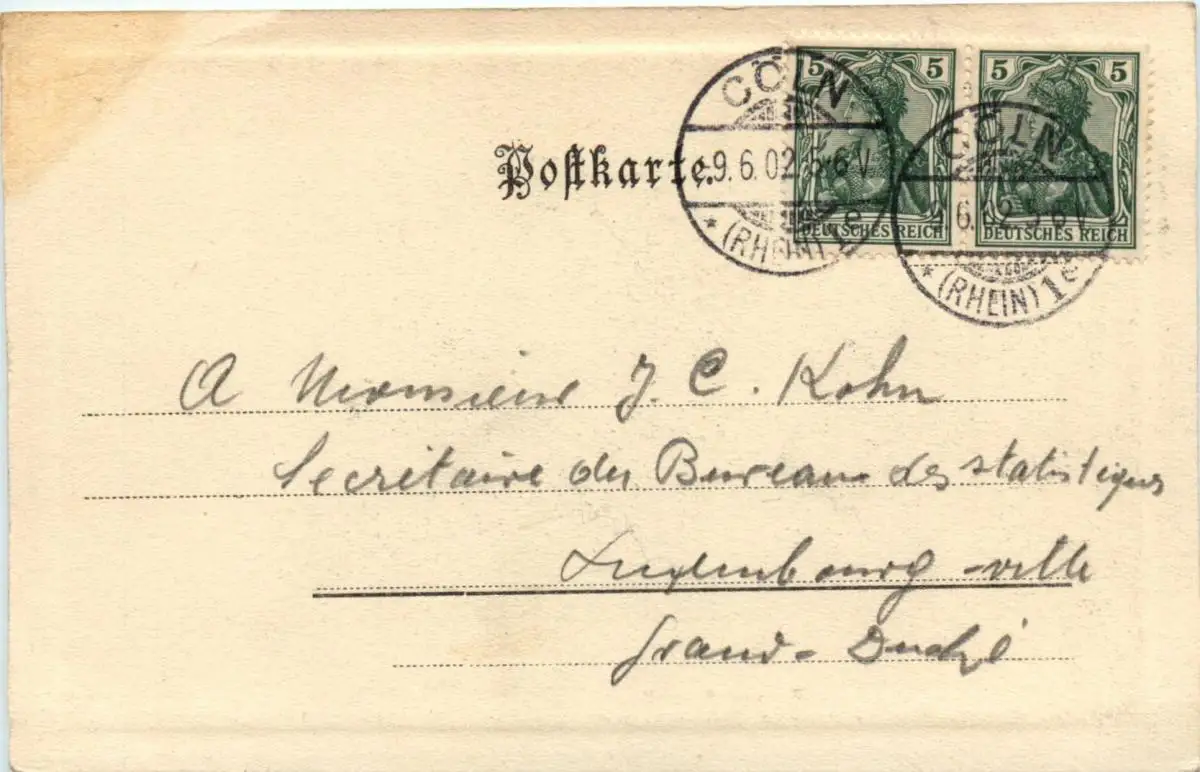 5 5 5 5
CÖLN
CÖLN
Postkarte.
9.6.02 5-6 V
6. 2 5-6 V
DEUTSCHES REICH DEUTSCHES REICH
* (RHEIN) 1e
* (RHEIN) 1e
A Monsieur J. C. Kohn
Secrétaire du Bureau des statistiques
Luxembourg-ville
Grand-Duché